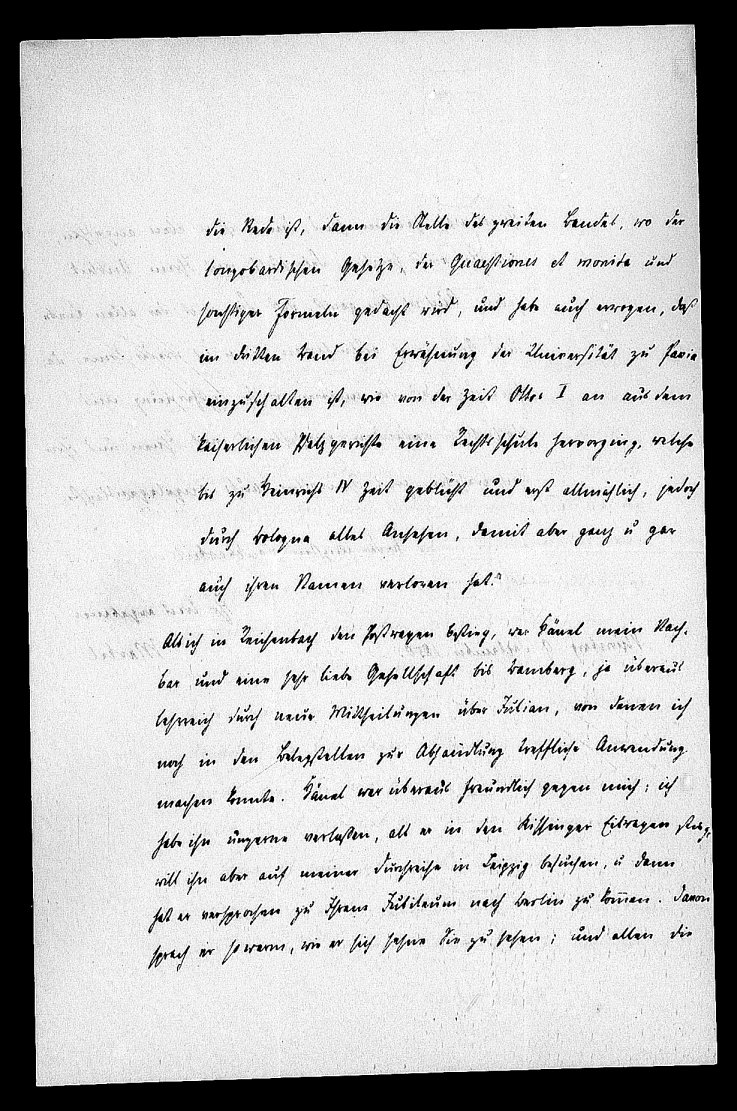 die Rede ist, dann die Stelle des zweiten Bandes, wo der
longobardischen Gesetze, der Quaestiones et monita und
sonstiger Formeln gedacht wird, und habe auch erwogen, daß
im dritten Band bei Erwähnung der Universität zu Pavia
einzuschalten ist, wie von der Zeit Ottos I an aus dem
kaiserlichen Pfalzgerichte eine Rechtsschule hervorging, welche
bis zu Heinrichs IV Zeit geblüht und erst allmählich, jedoch
durch Bologna alles Ansehen, damit aber ganz u gar
auch ihren Namen verloren hat."
Als ich in Reichenbach den Postwagen bestieg, war Hänel mein Nach-
bar und eine sehr liebe Gesellschaft bis Bamberg, ja überaus
lehrreich durch neue Mittheilungen über Julian, von denen ich
noch in den Belegstellen zur Abhandlung treffliche Anwendung
machen konnte. Hänel war überaus freundlich gegen mich; ich
habe ihn ungerne verlaßen, als er in den Kissinger Eilwagen stieg,
will ihn aber auf meiner Durchreise in Leipzig besuchen, u dann
hat er versprochen zu Ihrem Jubiläum nach Berlin zu kom̄en. Davon
sprach er so warm, wie er sich sehne Sie zu sehen; und allen die